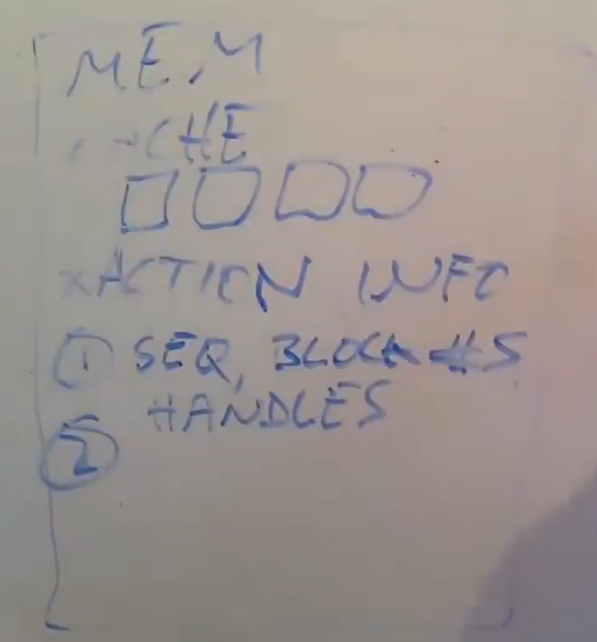 MEM
CACHE
XACTION INFO
① SEQ, BLOCK #S
HANDLES
②